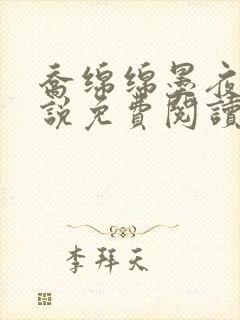 喬綿綿墨夜
說免費閱讀
李拜天